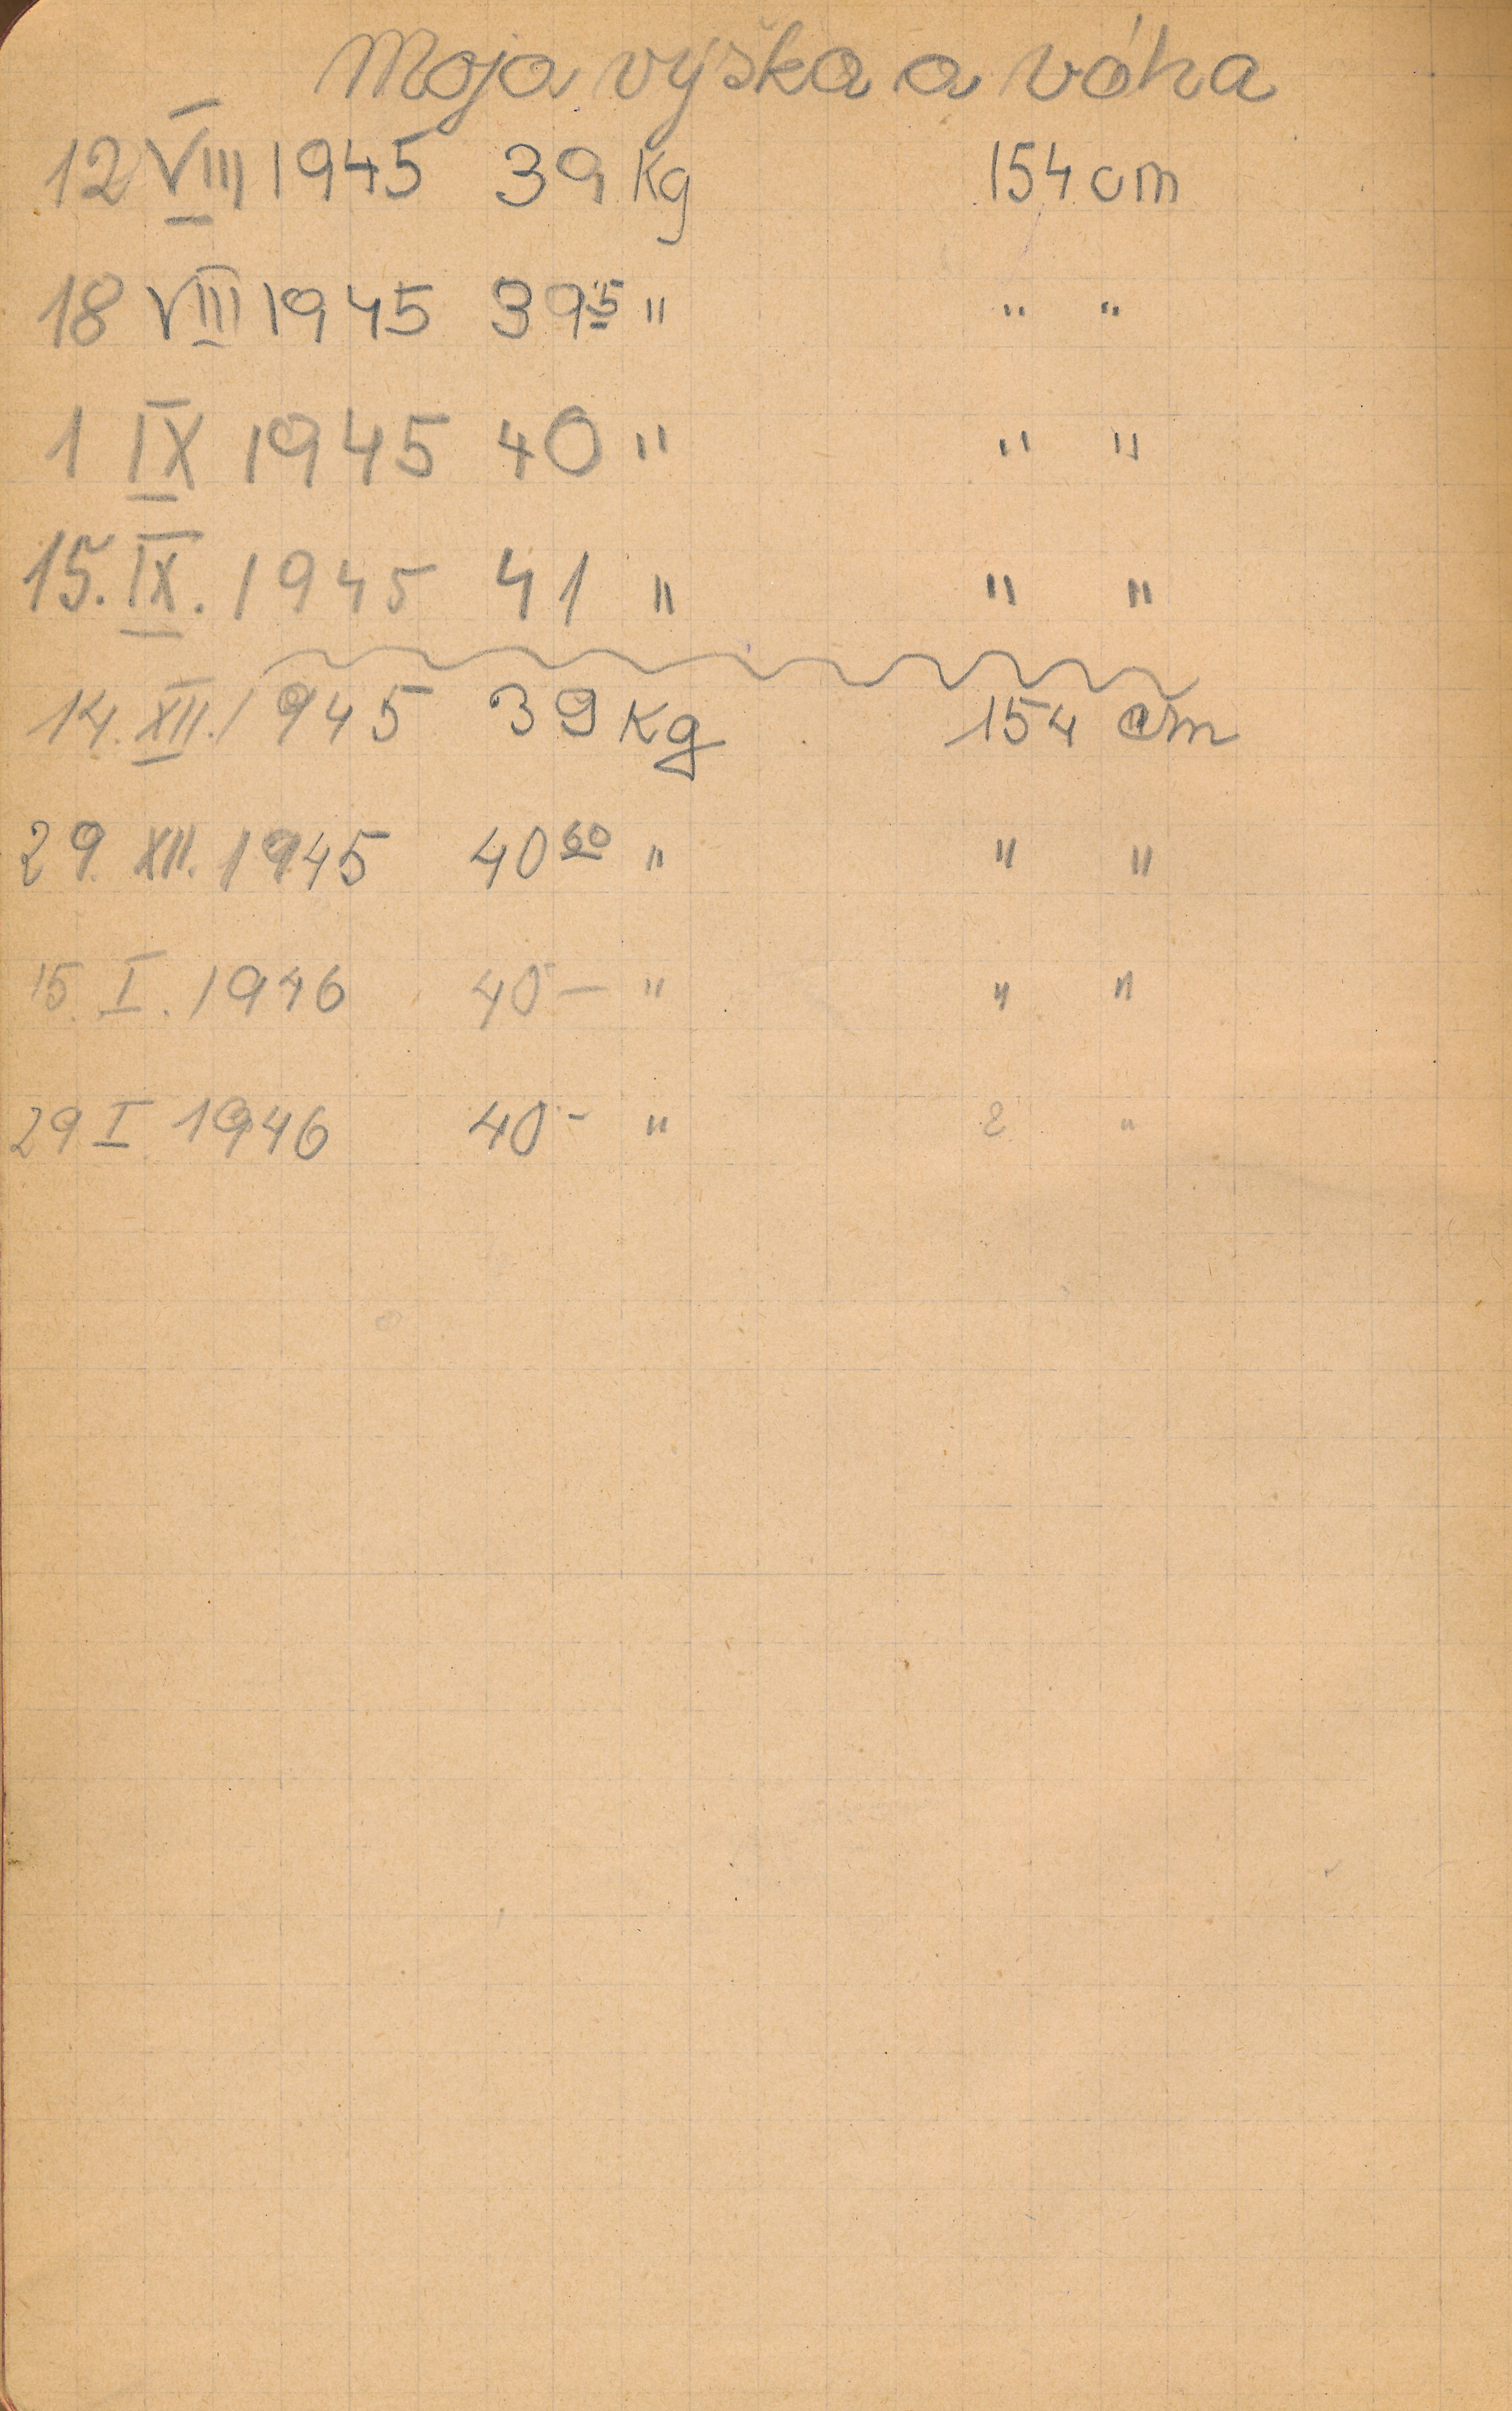 Moja výška a váha
12 VIII 1945 39 Kg 154 cm
18 VIII 1945 39 5 " " "
1 IX 1945 40 " " "
15. IX. 1945 41 " " "
14. XII. 1945 39 Kg 154 cm
29. XII. 1945 40 60 " " "
15. I. 1946 40 — " " "
29 I 1946 40 - " "